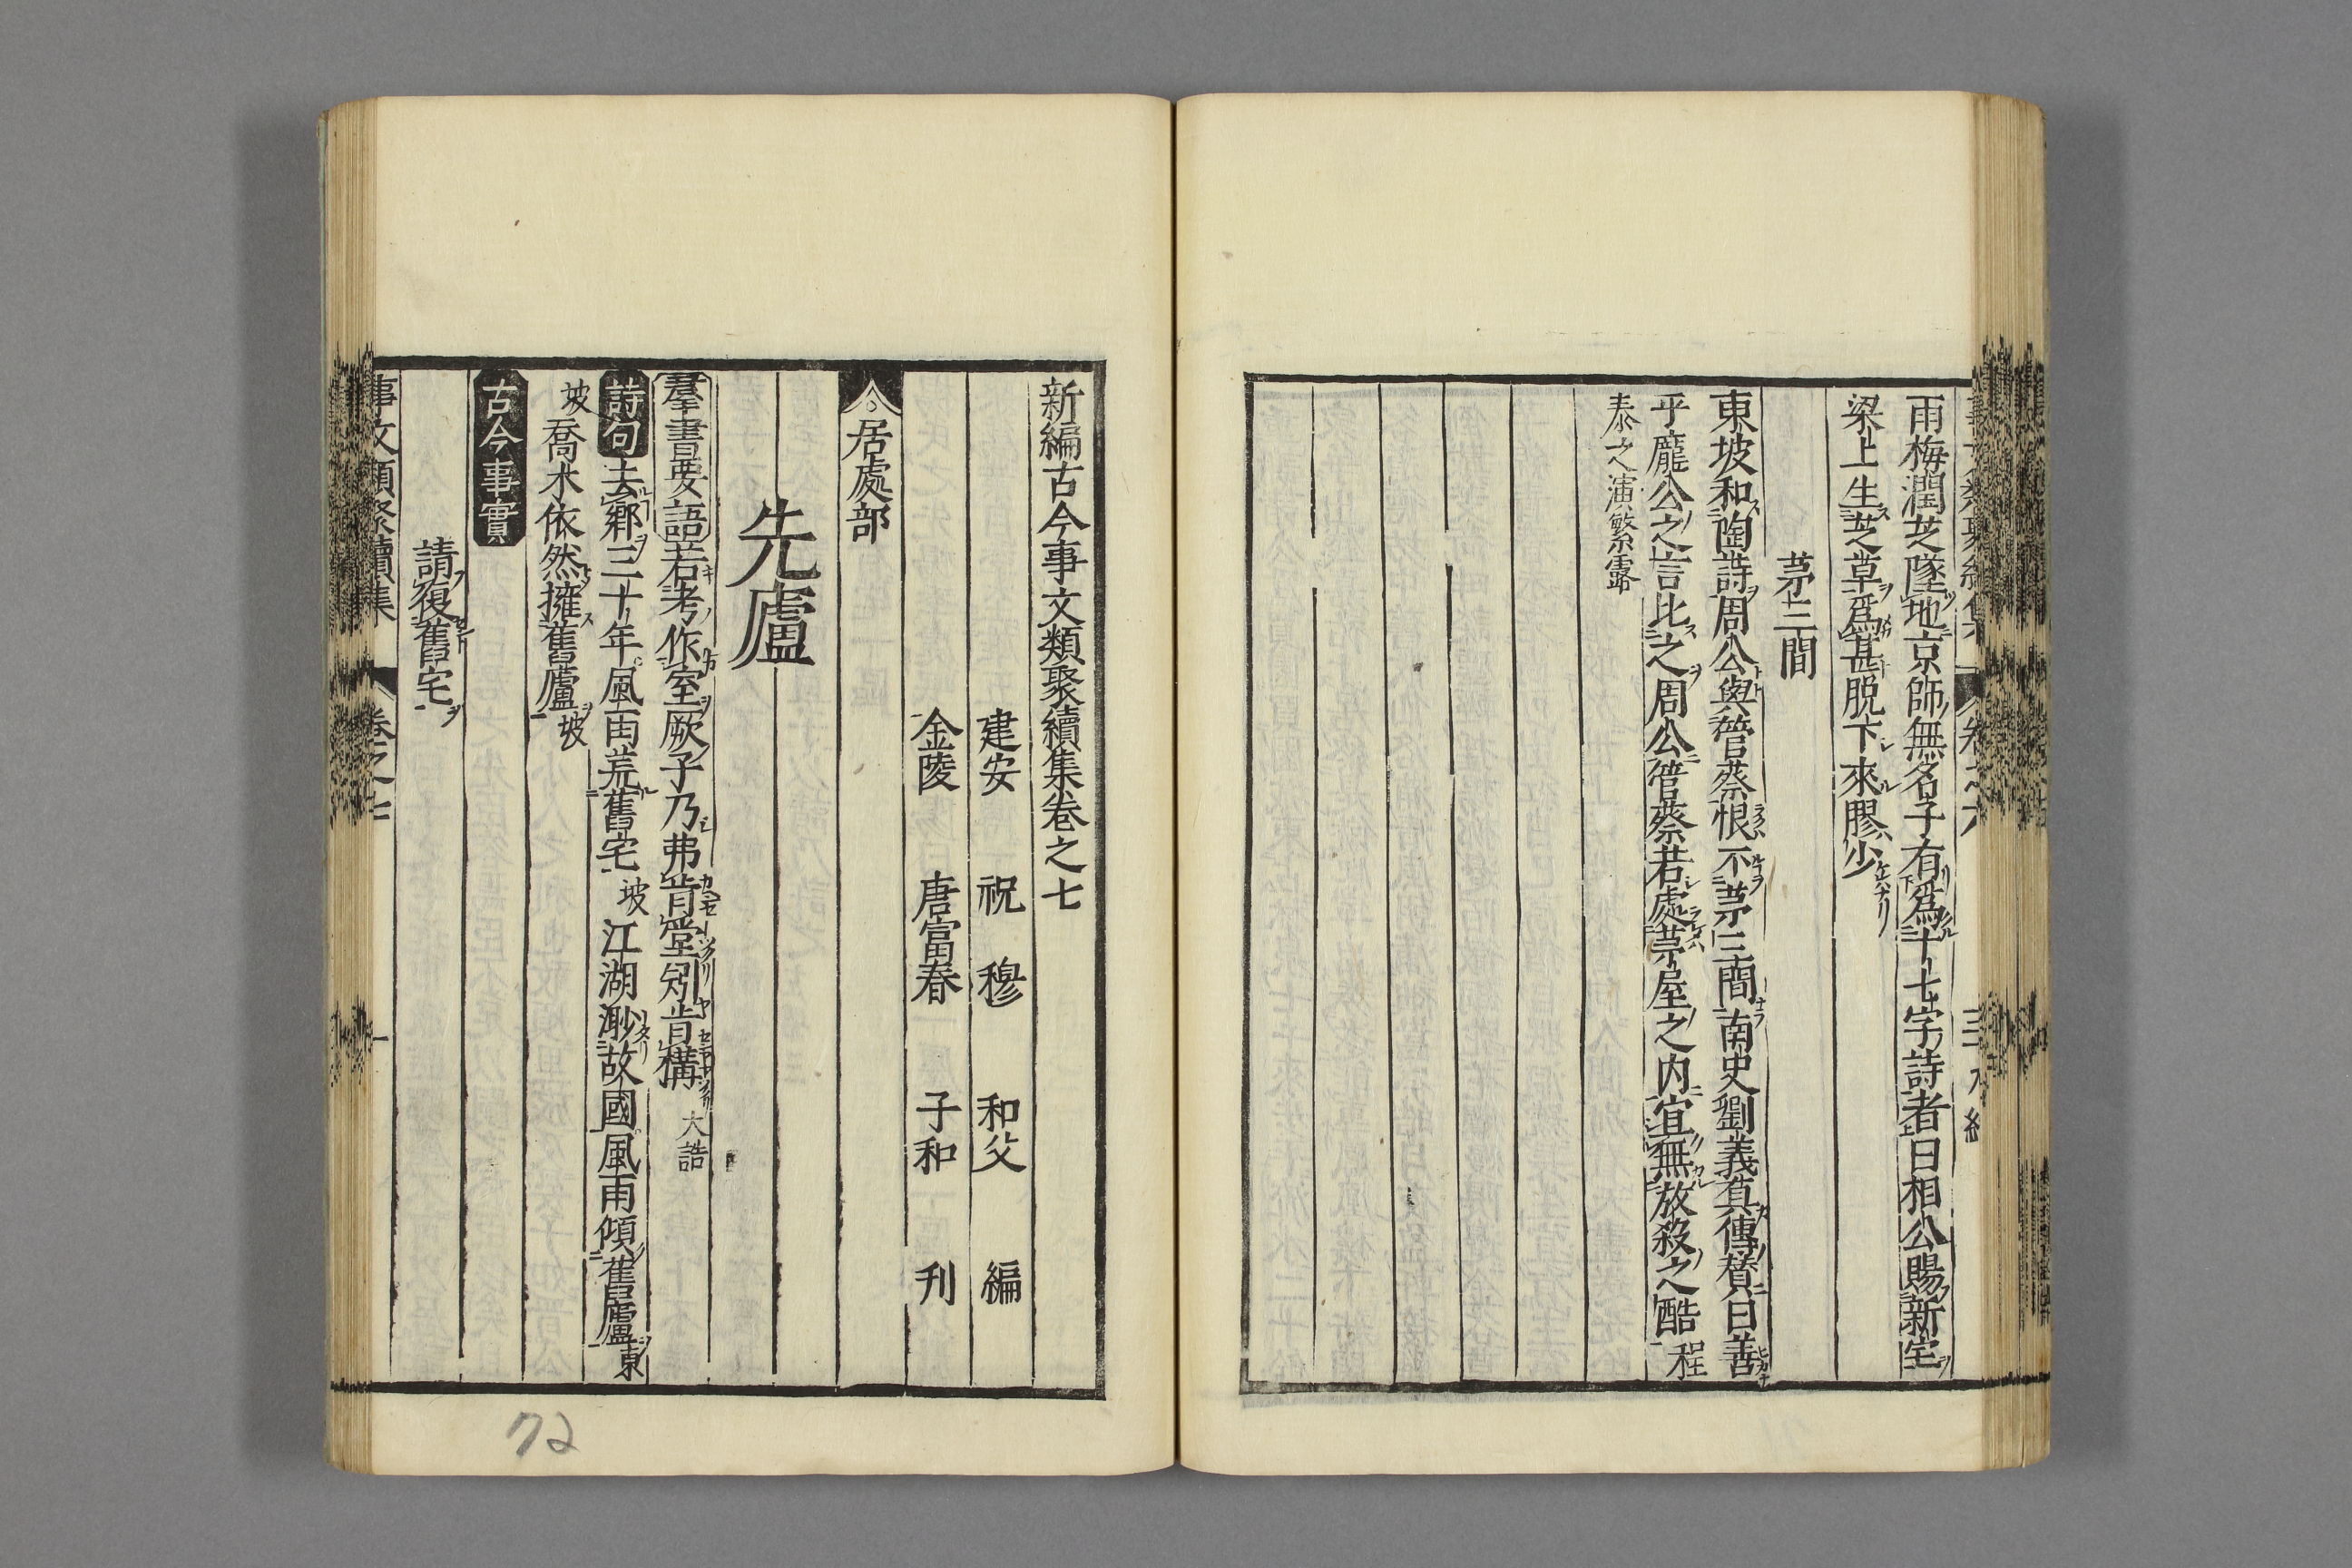 雨梅潤芝墜地京師無名子有爲十七字詩者曰相公賜新宅
梁上生芝草爲甚脱下來膠少
茅三間
東坡和陶詩周公與管蔡恨不茅三間南史劉義真傳賛曰善
乎龐公之言比之周公管蔡若處茅屋之内宜無放殺之酷程
泰之演繁露
新編古今事文類聚續集卷之七
建安 祝 穆 和父 編
金陵 唐富春 子和 刊
居處部
先廬
羣書要語若考作室厥子乃弗肯堂矧肯構大誥
詩句去鄉三十年風雨荒舊宅坡江湖渺故國風雨傾舊廬東
坡喬木依然擁舊廬坡
古今事實
請復舊宅
事文類聚續集 卷之七 一
72